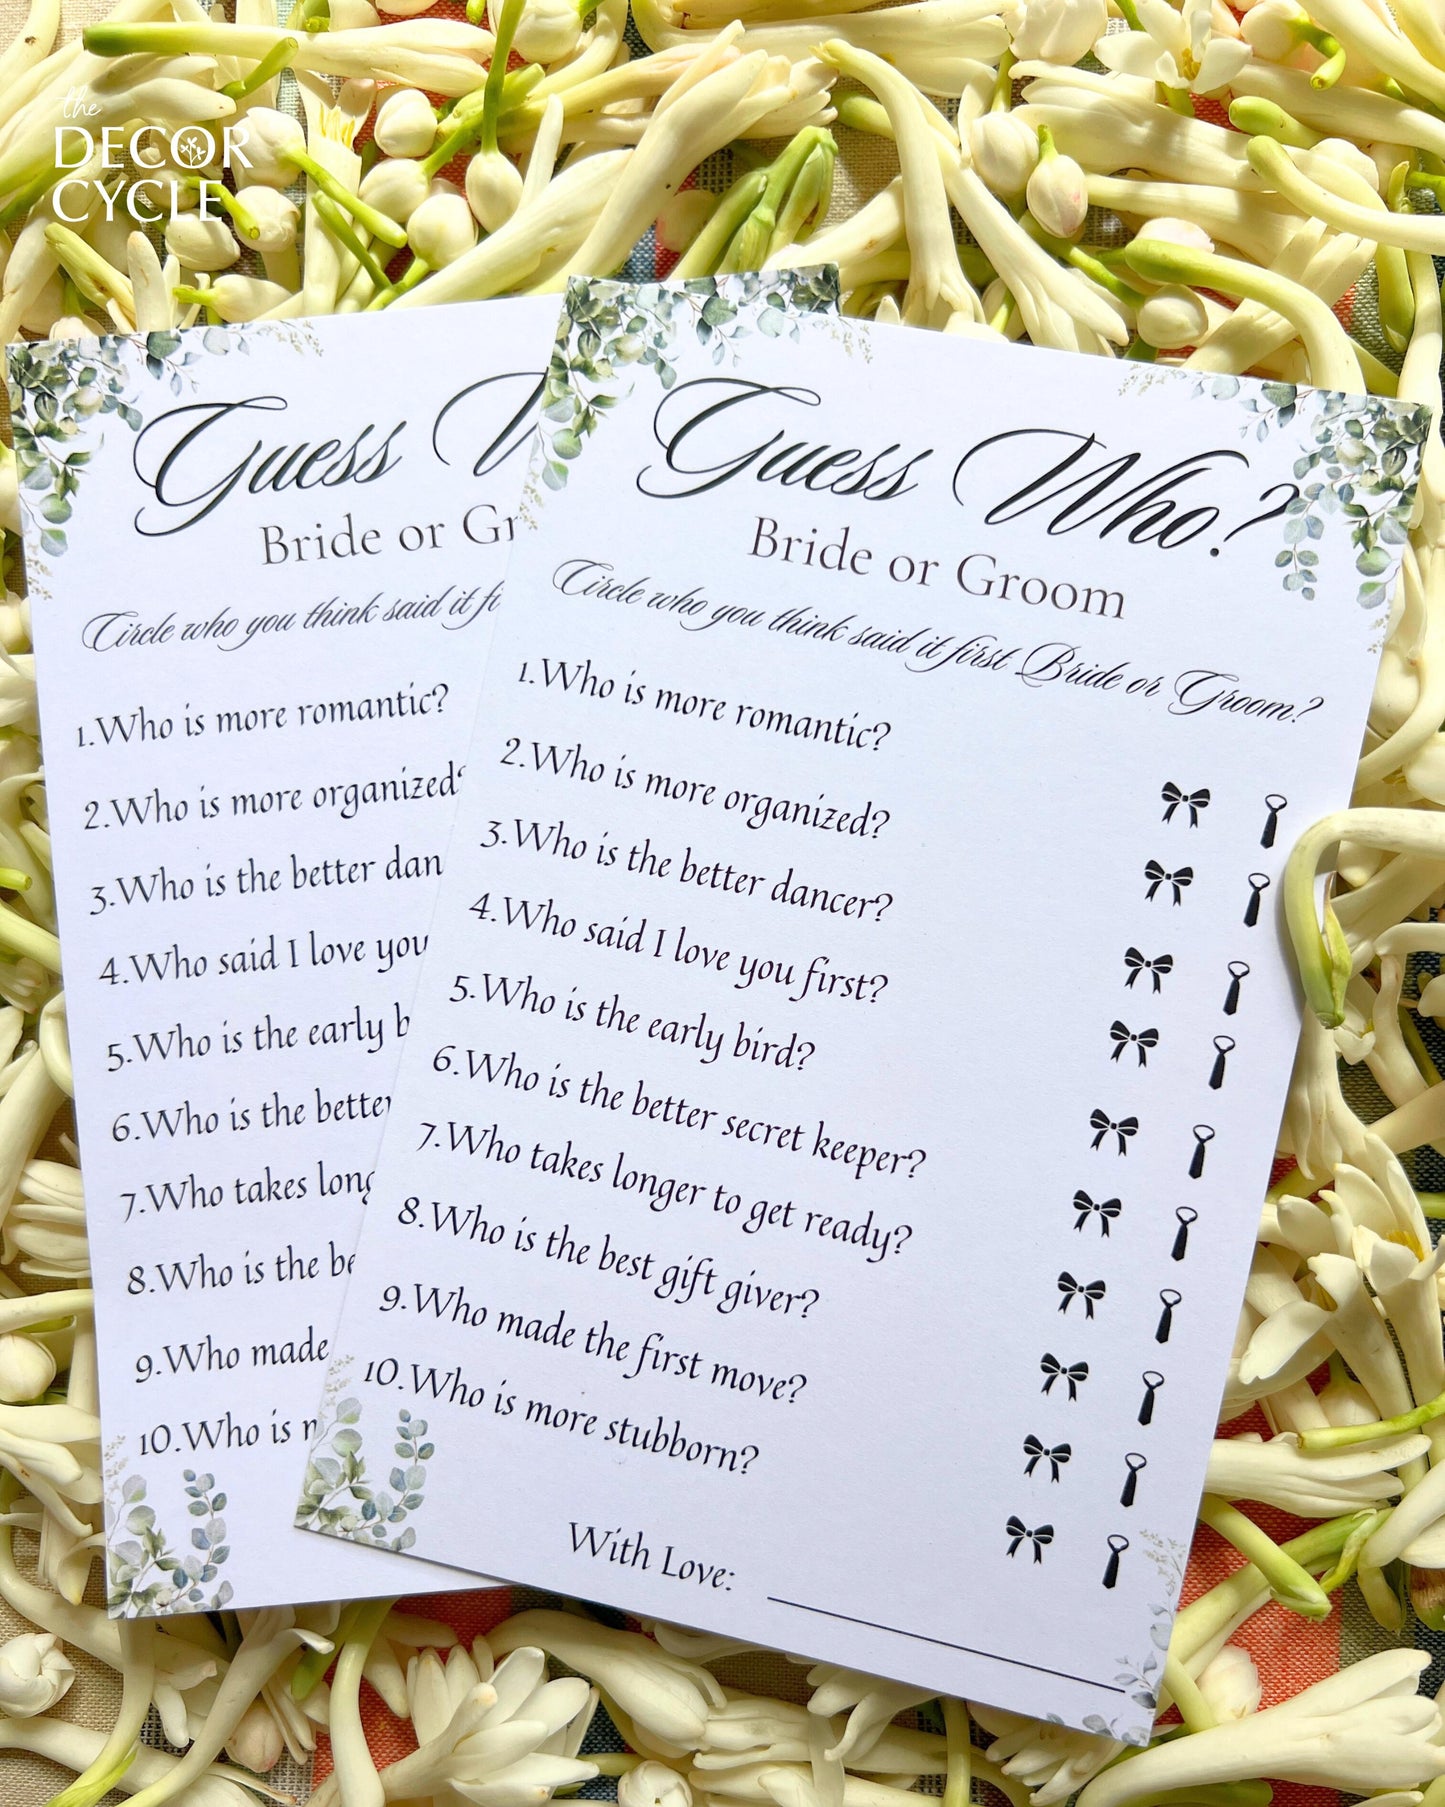 the
DECOR
CYCLE
Guess
Bride or Gr
Circle who you think said it fi
1.Who is more romantic?
2.Who is more organized?
3.Who is the better dan
4.Who said I love you
5.Who is the early b
6.Who is the better
7.Who takes long
8.Who is the be
9.Who made
10.Who is m
Guess Who?
Bride or Groom
Circle who you think said it first Bride or Groom?
1.Who is more romantic?
2.Who is more organized?
3.Who is the better dancer?
4.Who said I love you first?
5.Who is the early bird?
6.Who is the better secret keeper?
7.Who takes longer to get ready?
8.Who is the best gift giver?
9.Who made the first move?
10.Who is more stubborn?
With Love: